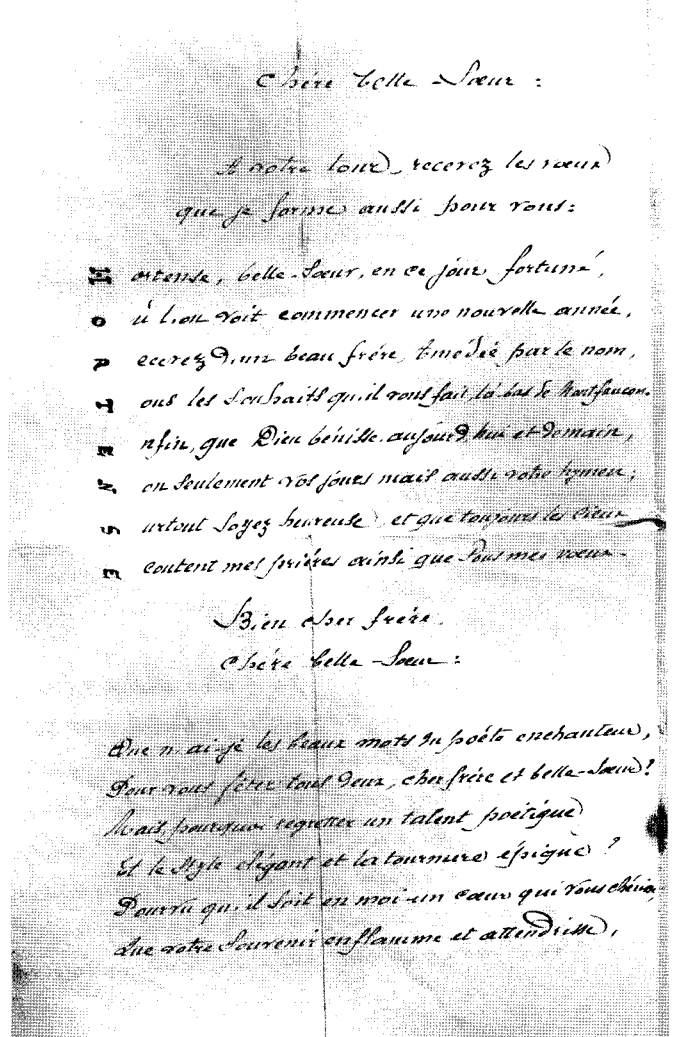 Chère belle-Sœur :
A votre tour, recevez les vœux
que je forme aussi pour vous :
Hortense, belle-Sœur, en ce jour fortuné,
Où l'on voit commencer une nouvelle année,
Recevez d'un beau frère, Amédée par le nom,
Tous les Souhaits qu'il vous fait là-bas de Montfaucon.
Enfin, que Dieu bénisse aujourd'hui et demain,
Non Seulement vos jours mais aussi votre hymen ;
Surtout Soyez heureuse, et que toujours les Cieux
Ecoutent mes prières ainsi que tous mes vœux.
Bien cher frère.
Chère belle-Sœur :
Que n'ai-je les beaux mots du poète enchanteur,
Pour vous fêter tous deux, cher frère et belle-Sœur ?
Mais, pourquoi regretter un talent poétique
Et le Style élégant et la tournure épique ?
Pourvu qu'il Soit en moi un cœur qui vous chérisse,
Que votre Souvenir enflamme et attendrisse,